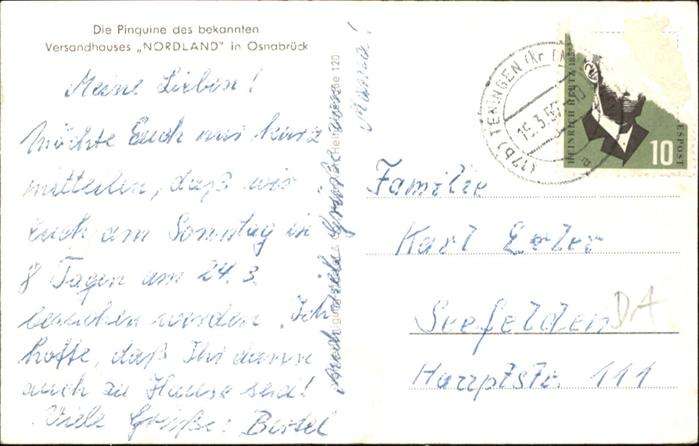 Die Pinguine des bekannten
Versandhauses „NORDLAND" in Osnabrück
Meine Lieben!
Möchte Euch nur kurz
mitteilen, daß wir
Euch am Sonntag in
8 Tagen am 24.3.
besuchen werden. Ich
hoffe, daß Ihr dann
auch zu Hause seid!
Viele Grüße: Bertel
Auch viele Grüße von
Mama!
120
(17b) TENINGEN (Kr.
15.3.57
HEINRICH HERTZ
ESPOST
10
Familie
Karl Erler
Seefelden
DA
Hauptstr. 111